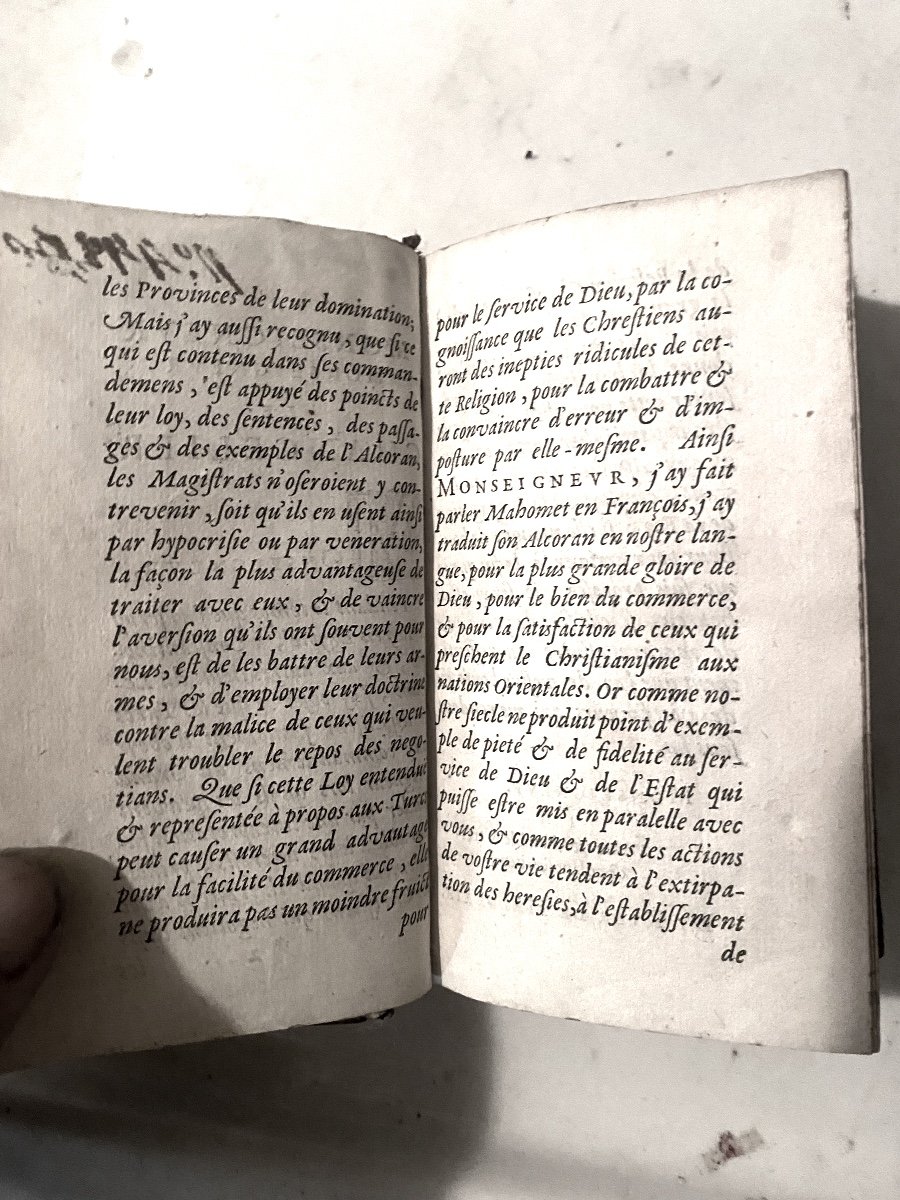 les Provinces de leur domination;
Mais j'ay auſſi recognu, que ſi ce
qui eſt contenu dans ſes comman-
demens, eſt appuyé des poincts de
leur loy, des ſentences, des paſſa-
ges & des exemples de l'Alcoran,
les Magiſtrats n'oſeroient y con-
trevenir, ſoit qu'ils en uſent ainſi
par hypocriſie ou par veneration,
la façon la plus advantageuſe de
traiter avec eux, & de vaincre
l'averſion qu'ils ont ſouvent pour
nous, eſt de les battre de leurs ar-
mes, & d'employer leur doctrine
contre la malice de ceux qui veu-
lent troubler le repos des nego-
tians. Que ſi cette Loy entendue
& repreſentée à propos aux Turcs
peut cauſer un grand advantage
pour la facilité du commerce, elle
ne produira pas un moindre fruict
pour
pour le ſervice de Dieu, par la co-
gnoiſſance que les Chreſtiens au-
ront des inepties ridicules de cet-
te Religion, pour la combattre &
la convaincre d'erreur & d'im-
poſture par elle-meſme. Ainſi
MONSEIGNEVR, j'ay fait
parler Mahomet en François, j'ay
traduit ſon Alcoran en noſtre lan-
gue, pour la plus grande gloire de
Dieu, pour le bien du commerce,
& pour la ſatisfaction de ceux qui
preſchent le Chriſtianiſme aux
nations Orientales. Or comme no-
ſtre ſiecle ne produit point d'exem-
ple de pieté & de fidelité au ſer-
vice de Dieu & de l'Eſtat qui
puiſſe eſtre mis en paralelle avec
vous, & comme toutes les actions
de voſtre vie tendent à l'extirpa-
tion des hereſies, à l'eſtabliſſement
de